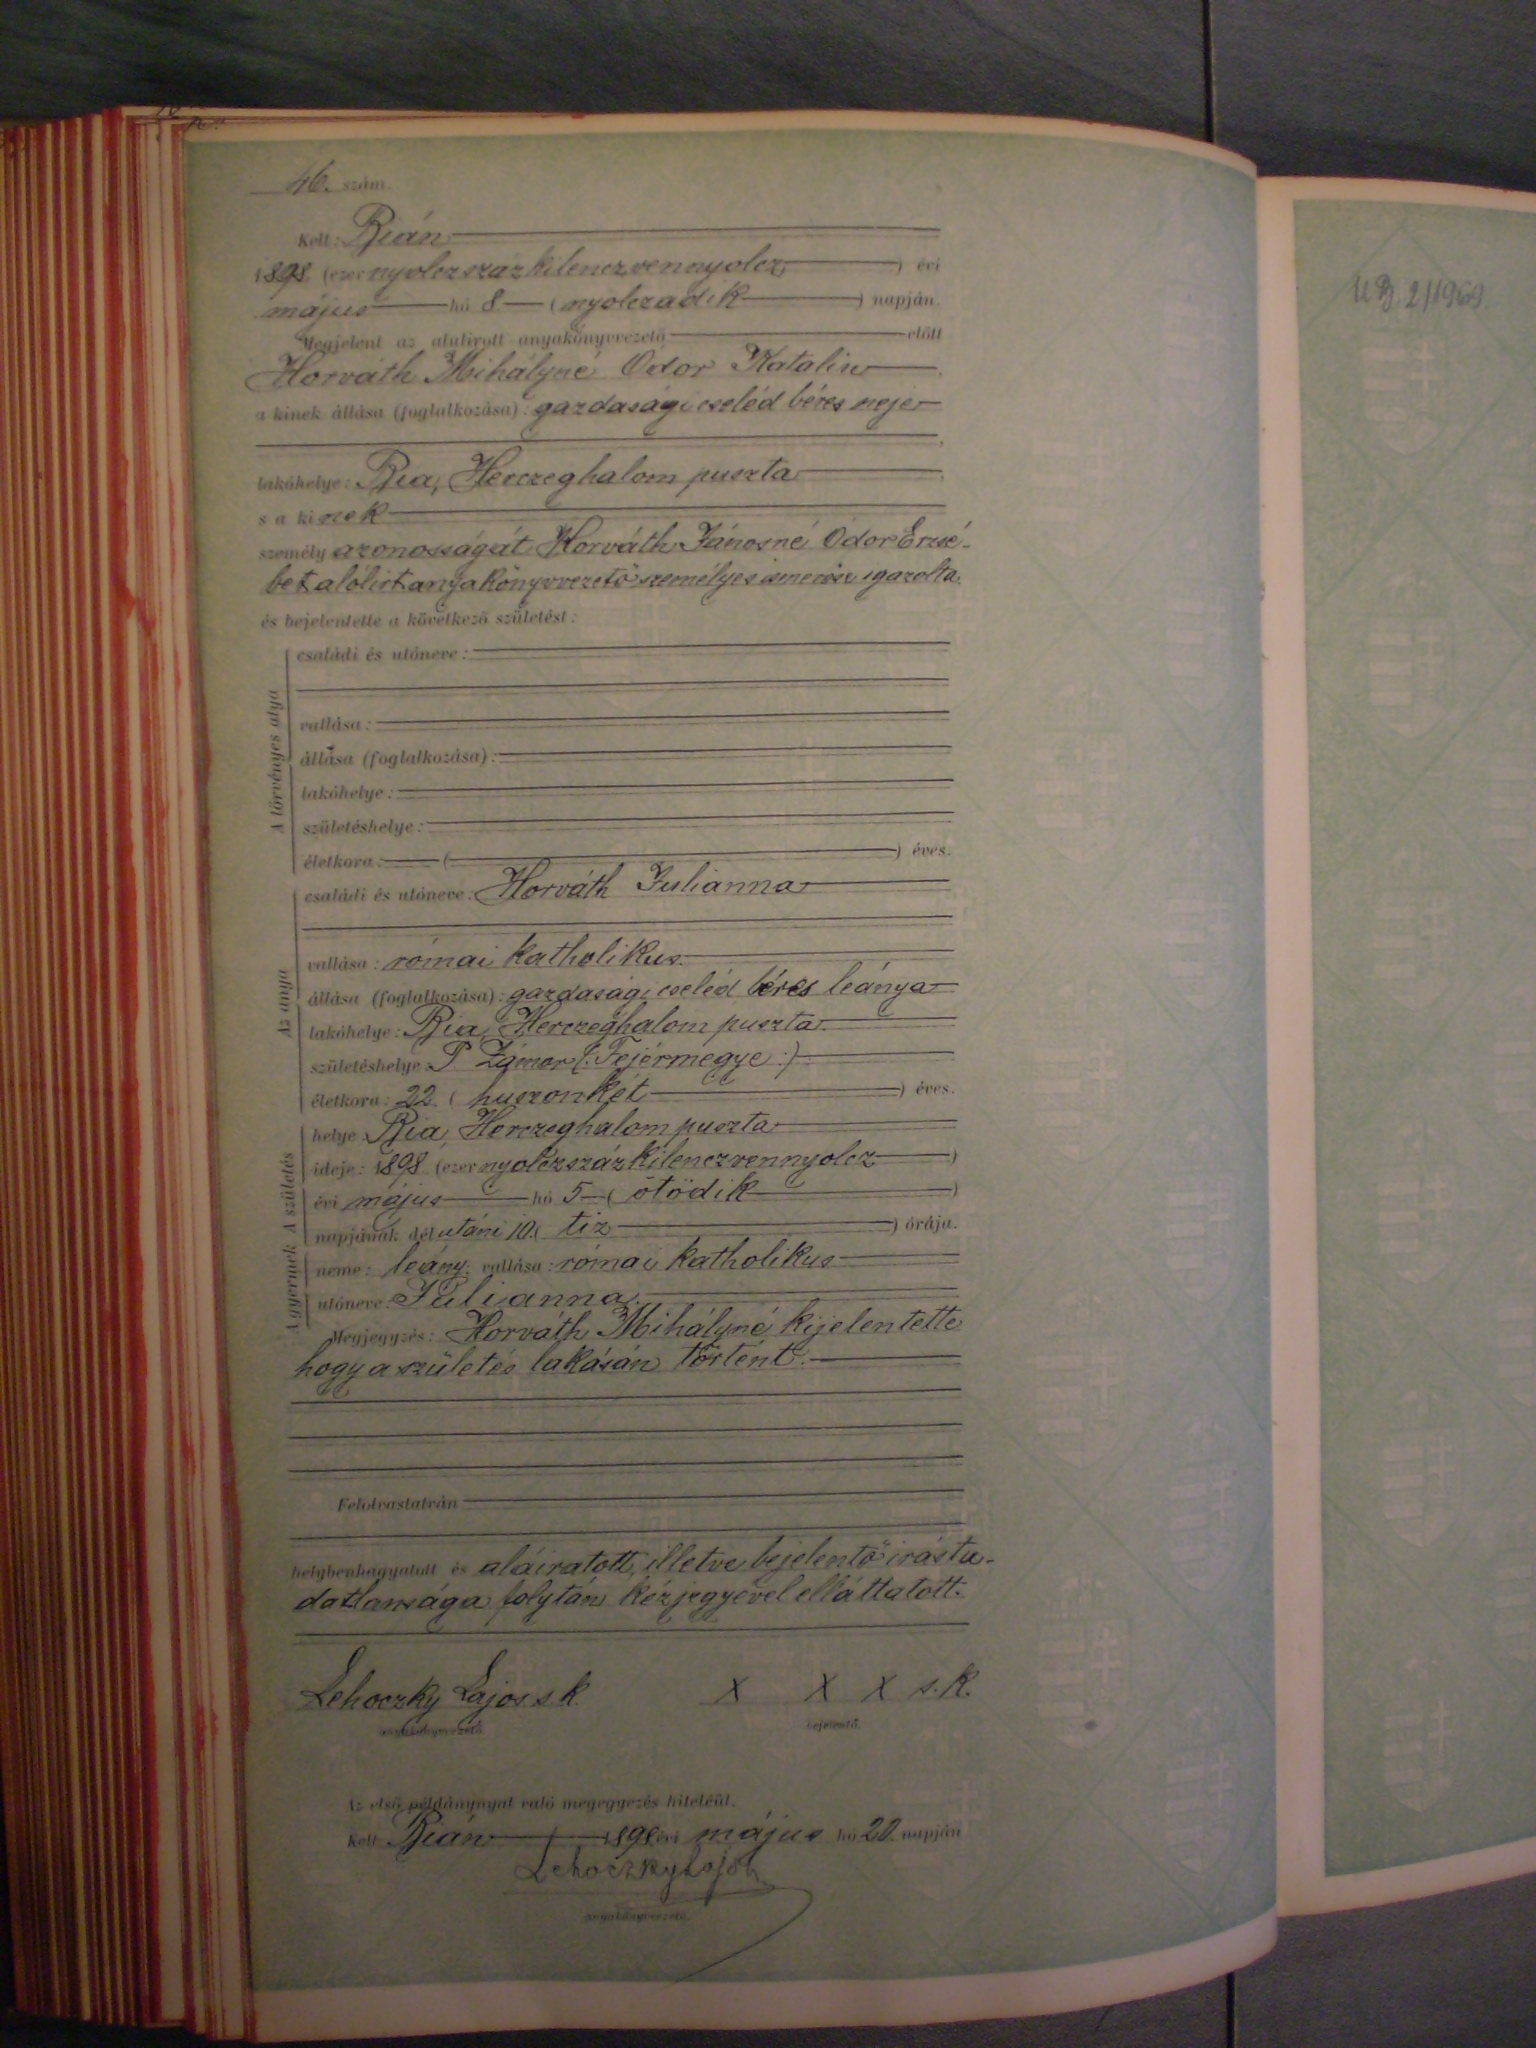 46. szám.
Kelt: Bián
1898. (ezer nyolczszáz kilenczvennyolcz) évi
május hó 8 (nyolczadik) napján
Megjelent az alulirott anyakönyvvezető előtt
Horváth Mihályné Odor Katalin
a kinek állása (foglalkozása): gazdasági cseléd béres neje
lakóhelye: Bia, Herczeghalom puszta
s a kinek
személy azonosságát Horváth Jánosné Odor Erzsé-
bet alólirt anyakönyvvezető személyes ismerőse igazolta.
és bejelentette a következő születést:
A törvényes atya
családi és utóneve:
vallása:
állása (foglalkozása):
lakóhelye:
születéshelye:
életkora: ( ) éves.
Az anya
családi és utóneve: Horváth Julianna
vallása: római katholikus
állása (foglalkozása): gazdasági cseléd béres leánya
lakóhelye: Bia, Herczeghalom puszta
születéshelye: P. Zámor (: Fejérmegye :)
életkora: 22 (huszonkét) éves.
A születés
helye: Bia, Herczeghalom puszta
ideje: 1898 (ezer nyolczszáz kilenczvennyolcz)
évi május hó 5 (ötödik)
napjának délutáni 10. (tiz) órája.
A gyermek
neme: leány; vallása: római katholikus
utóneve: Julianna.
Megjegyzés: Horváth Mihályné kijelentette
hogy a születés lakásán történt.
Felolvastatván
helybenhagyatott és aláiratott, illetve bejelentő irástu-
datlansága folytán kézjegyével elláttatott.
Lehoczky Lajos s k. X X X s. k.
anyakönyvvezető bejelentő.
Az első példánynyal való megegyezés hiteléül.
Kelt Bián 1898 évi május hó 20. napján
Lehoczky Lajos
anyakönyvvezető.
2/1969.